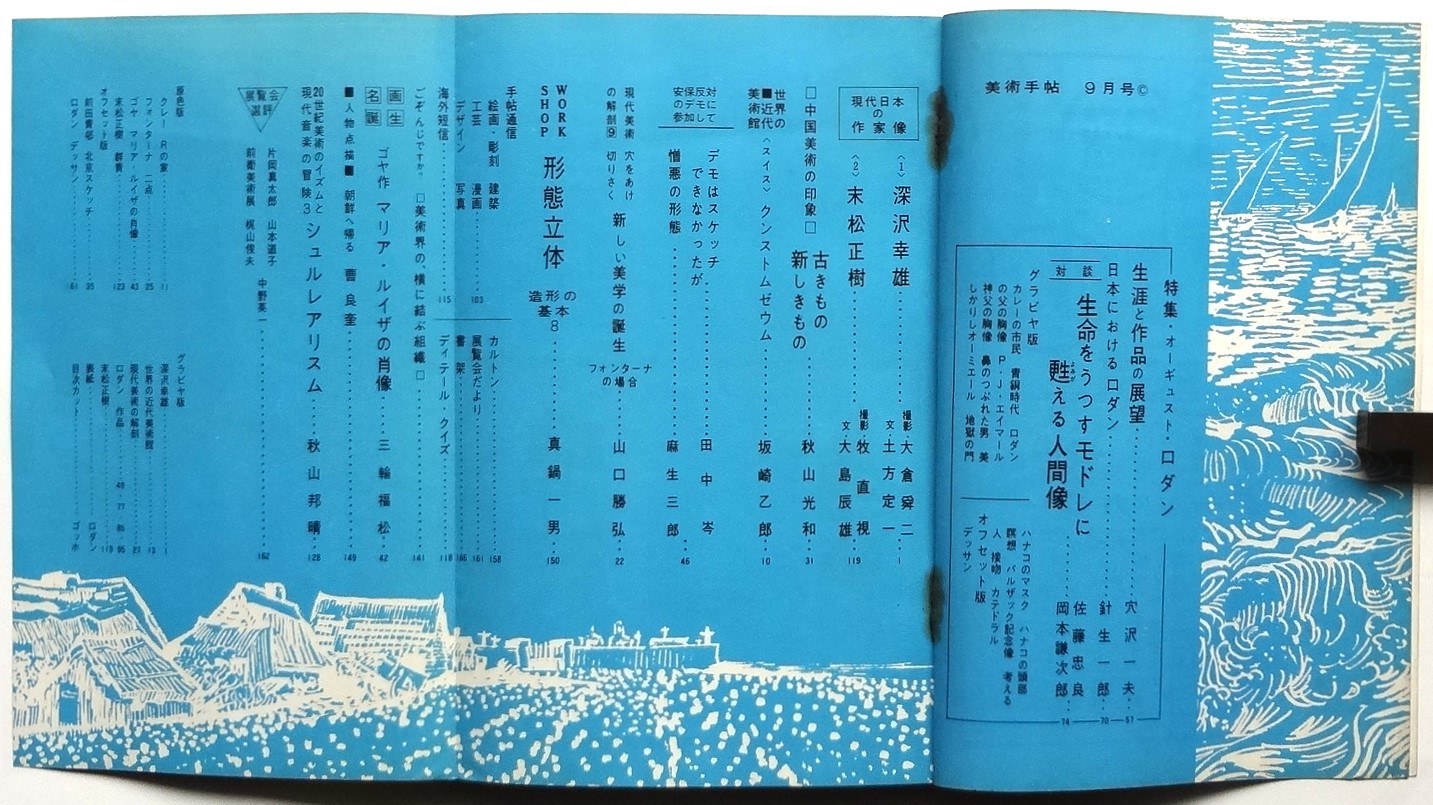 美術手帖 9月号©
特集・オーギュスト・ロダン
生涯と作品の展望 穴沢一夫 57
日本におけるロダン 針生一郎 70
対談
生命をうつすモドレに
甦える人間像
よみが
佐藤忠良
岡本謙次郎 74
グラビヤ版
カレーの市民 青銅時代 ロダン
の父の胸像 P・J・エイマール
神父の胸像 鼻のつぶれた男 美
しかりしオーミエール 地獄の門
ハナコのマスク ハナコの頭部
瞑想 バルザック記念像 考える
人 接吻 カテドラル
オフセット版
デッサン
現代日本
の
作家像
〈1〉 深沢幸雄 撮影・大倉舜二
文・土方定一 1
〈2〉 末松正樹 撮影 牧直視
文 大島辰雄 119
□中国美術の印象□
古きもの
新しきもの 秋山光和 31
世界の
■近代
美術館
〈スイス〉 クンストムゼウム 坂崎乙郎 10
安保反対
のデモに
参加して
デモはスケッチ
できなかったが 田中岑
憎悪の形態 麻生三郎 46
現代美術
の解剖9
穴をあけ
切りさく
新しい美学の誕生
フォンターナ
の場合
山口勝弘 22
WORK
SHOP
形態立体
造形の
基本8
真鍋一男 150
手帖通信
絵画・彫刻 建築
工芸 漫画 103
デザイン 写真
海外短信 115
カルトン 158
展覧会だより 161
書架 166
ディテール クイズ 118
ごぞんじですか? □美術界の横に結ぶ組織□ 141
名画
誕生
ゴヤ作 マリア・ルイザの肖像 三輪福松 42
■人物点描■ 朝鮮へ帰る 曹良奎 149
20世紀美術のイズムと
現代音楽の冒険3
シュルレアリスム 秋山邦晴 128
展覧会
選評
片岡真太郎 山本道子
前衛美術展 梶山俊夫
中野英一 162
原色版
クレー Rの家 11
フォンターナ 二点 25
ゴヤ マリア・ルイザの肖像 43
末松正樹 群青 123
オフセット版
前田青邨 北京スケッチ 35
ロダン デッサン 61
グラビヤ版
深沢幸雄 1
世界の近代美術館 13
現代美術の解剖 27
ロダン 作品 48・77 86・95
末松正樹 119
表紙 ロダン
目次カット ゴッホ